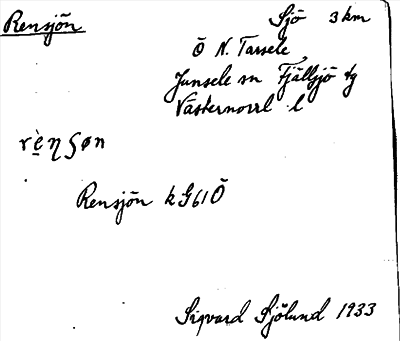 Rensjön
Sjö 3 km
Ö N. Tarsele
Junsele sn Fjällsjö tg
Västernorrl l
rè̱ŋʃøn
Rensjön k G61Ö
Sigvard Sjölund 1933